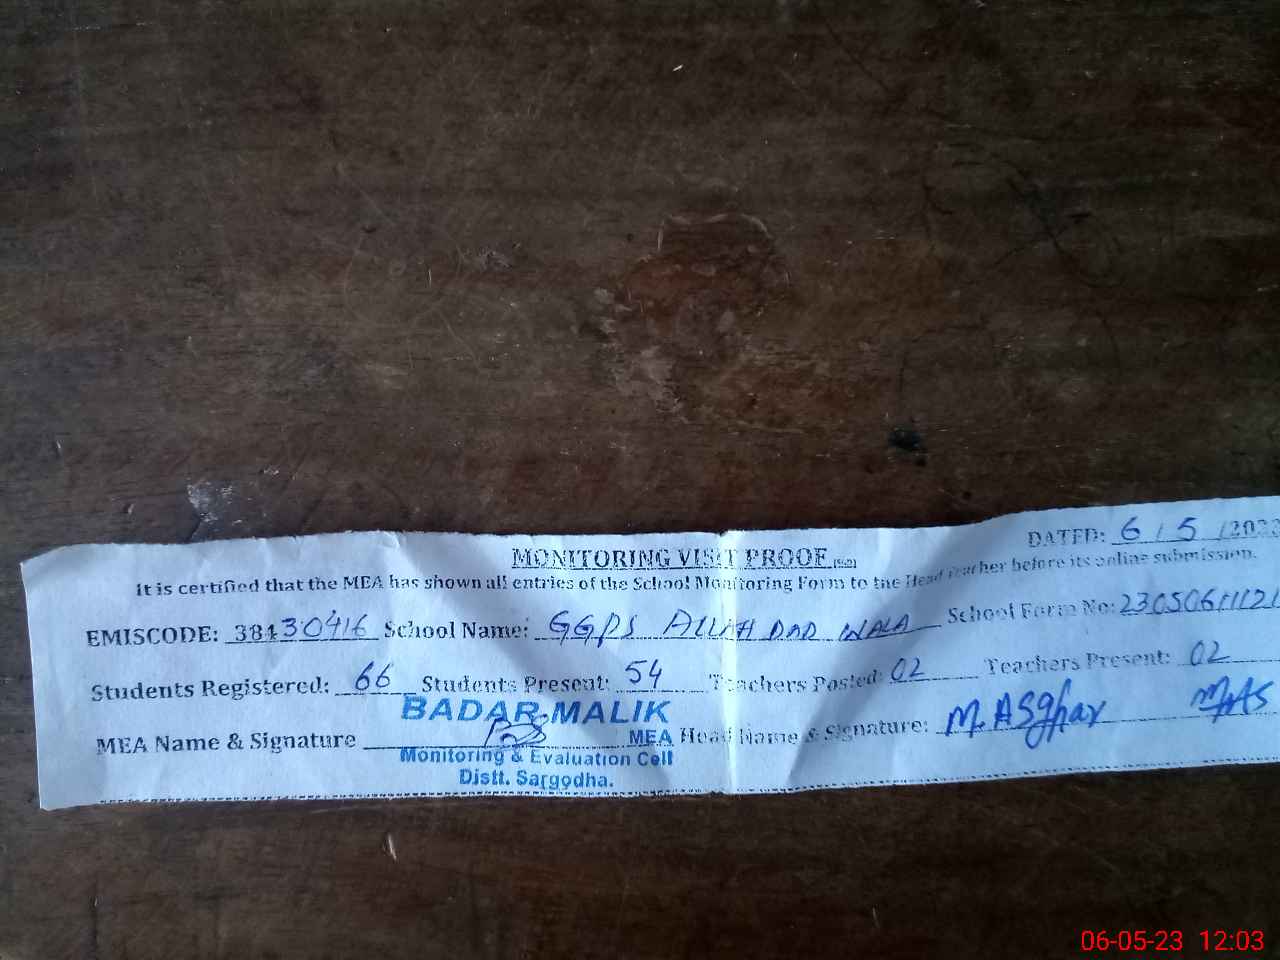 DATED: 6 / 5 /202
MONITORING VISIT PROOF
It is certified that the MEA has shown all entries of the School Monitoring Form to the Head Teacher before its online submission.
EMISCODE: 38430416 School Name: GGPS ALLAH DAD WALA School Form No: 23050611121
Students Registered: 66 Students Present: 54 Teachers Posted: 02 Teachers Present: 02
BADAR MALIK
MEA Name & Signature MEA Head Name & Signature: M. ASghar
Monitoring & Evaluation Cell
Distt. Sargodha.
06-05-23 12:03